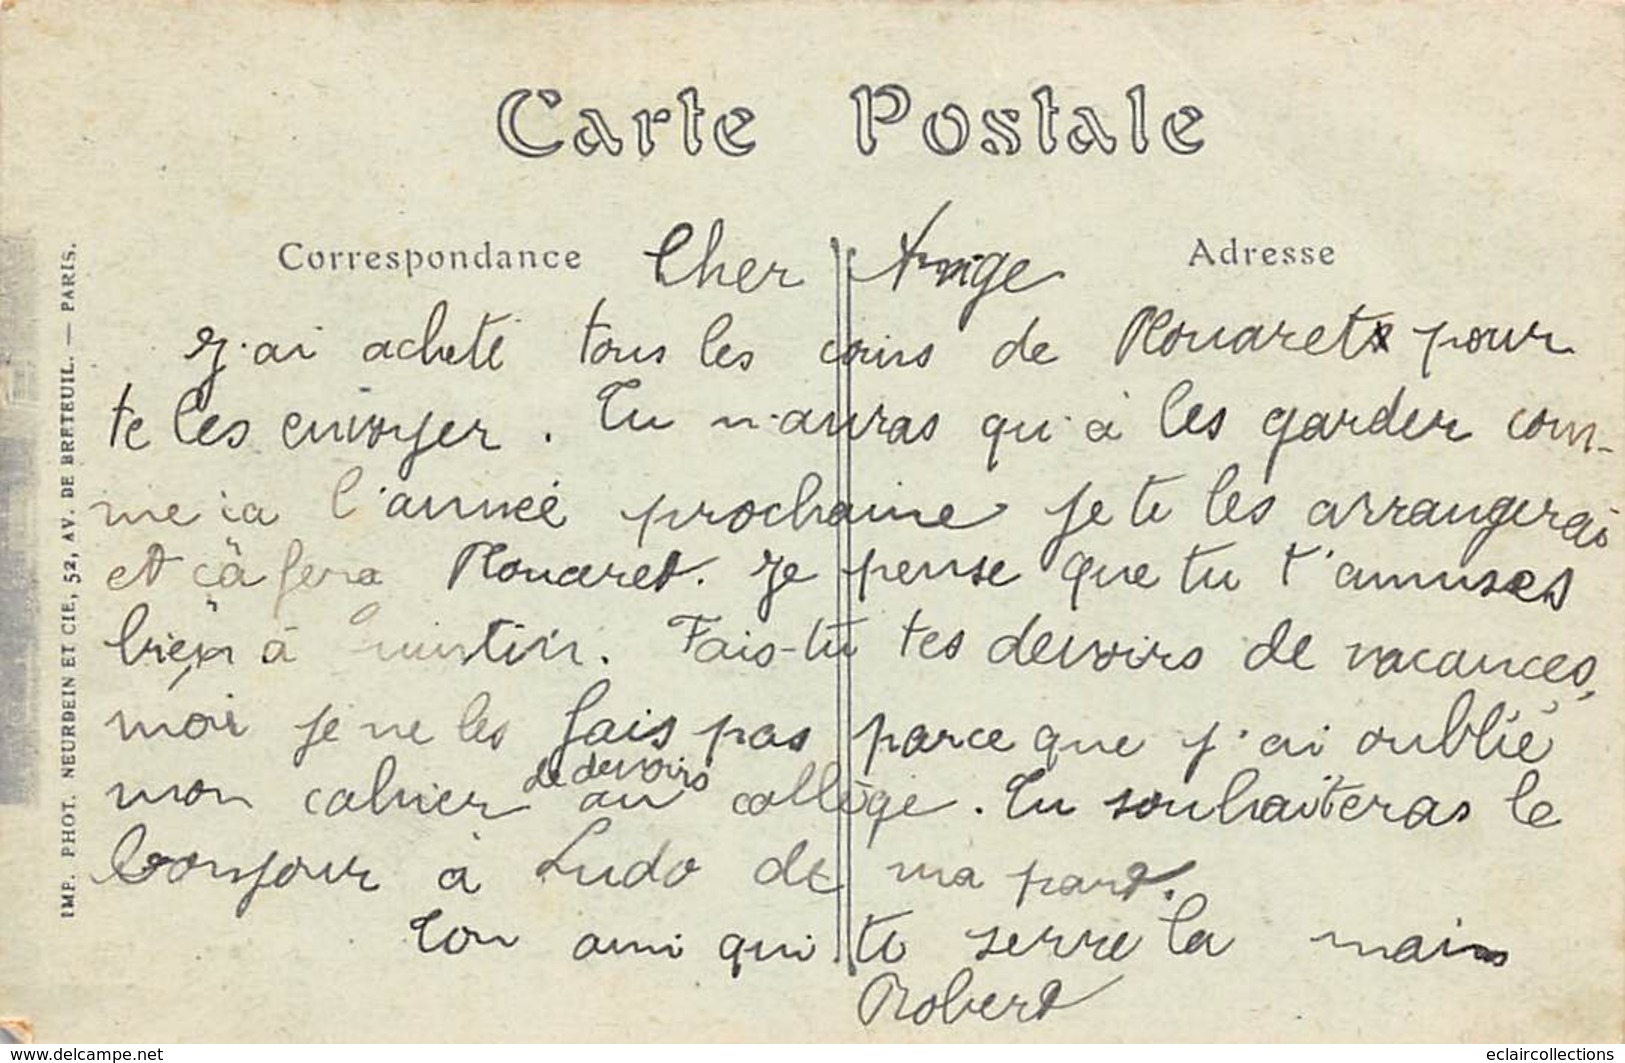 Carte Postale
Correspondance Cher Ange Adresse
J'ai acheté tous les coins de Plouaret pour
te les envoyer. Tu n'auras qu'à les garder com-
me ça l'année prochaine je te les arrangerai
et çà fera Plouaret. Je pense que tu t'amuses
bien à Quintin. Fais-tu tes devoirs de vacances,
moi je ne les fais pas parce que j'ai oublié
mon cahier de devoirs au collège. Tu souhaiteras le
bonjour à Ludo de ma part.
Ton ami qui te serre la main
Robert
IMP. PHOT. NEURDEIN ET CIE, 52, AV. DE BRETEUIL. — PARIS.
www.delcampe.net eclaircollections